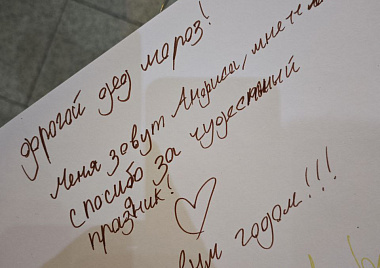 дорогой дед мороз!
Меня зовут Андриса, мне
спосибо за чудестный
праздник! ♡
годом!!!